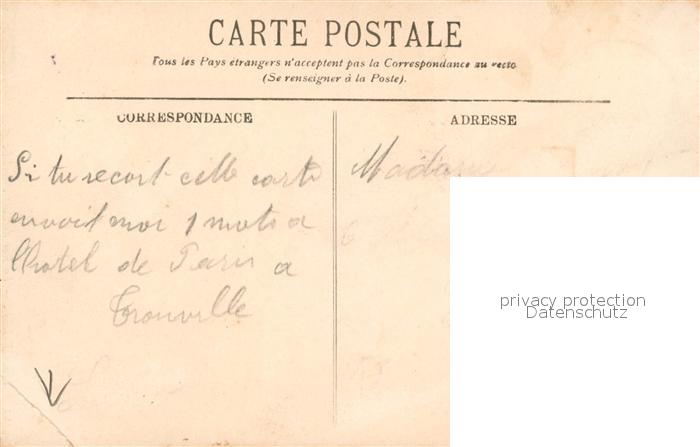 CARTE POSTALE
Tous les Pays étrangers n'acceptent pas la Correspondance au recto
(Se renseigner à la Poste).
CORRESPONDANCE
ADRESSE
Si tu recoit cette carte
envoit moi 1 mots a
l'hotel de Paris a
Trouville
Madame
privacy protection
Datenschutz